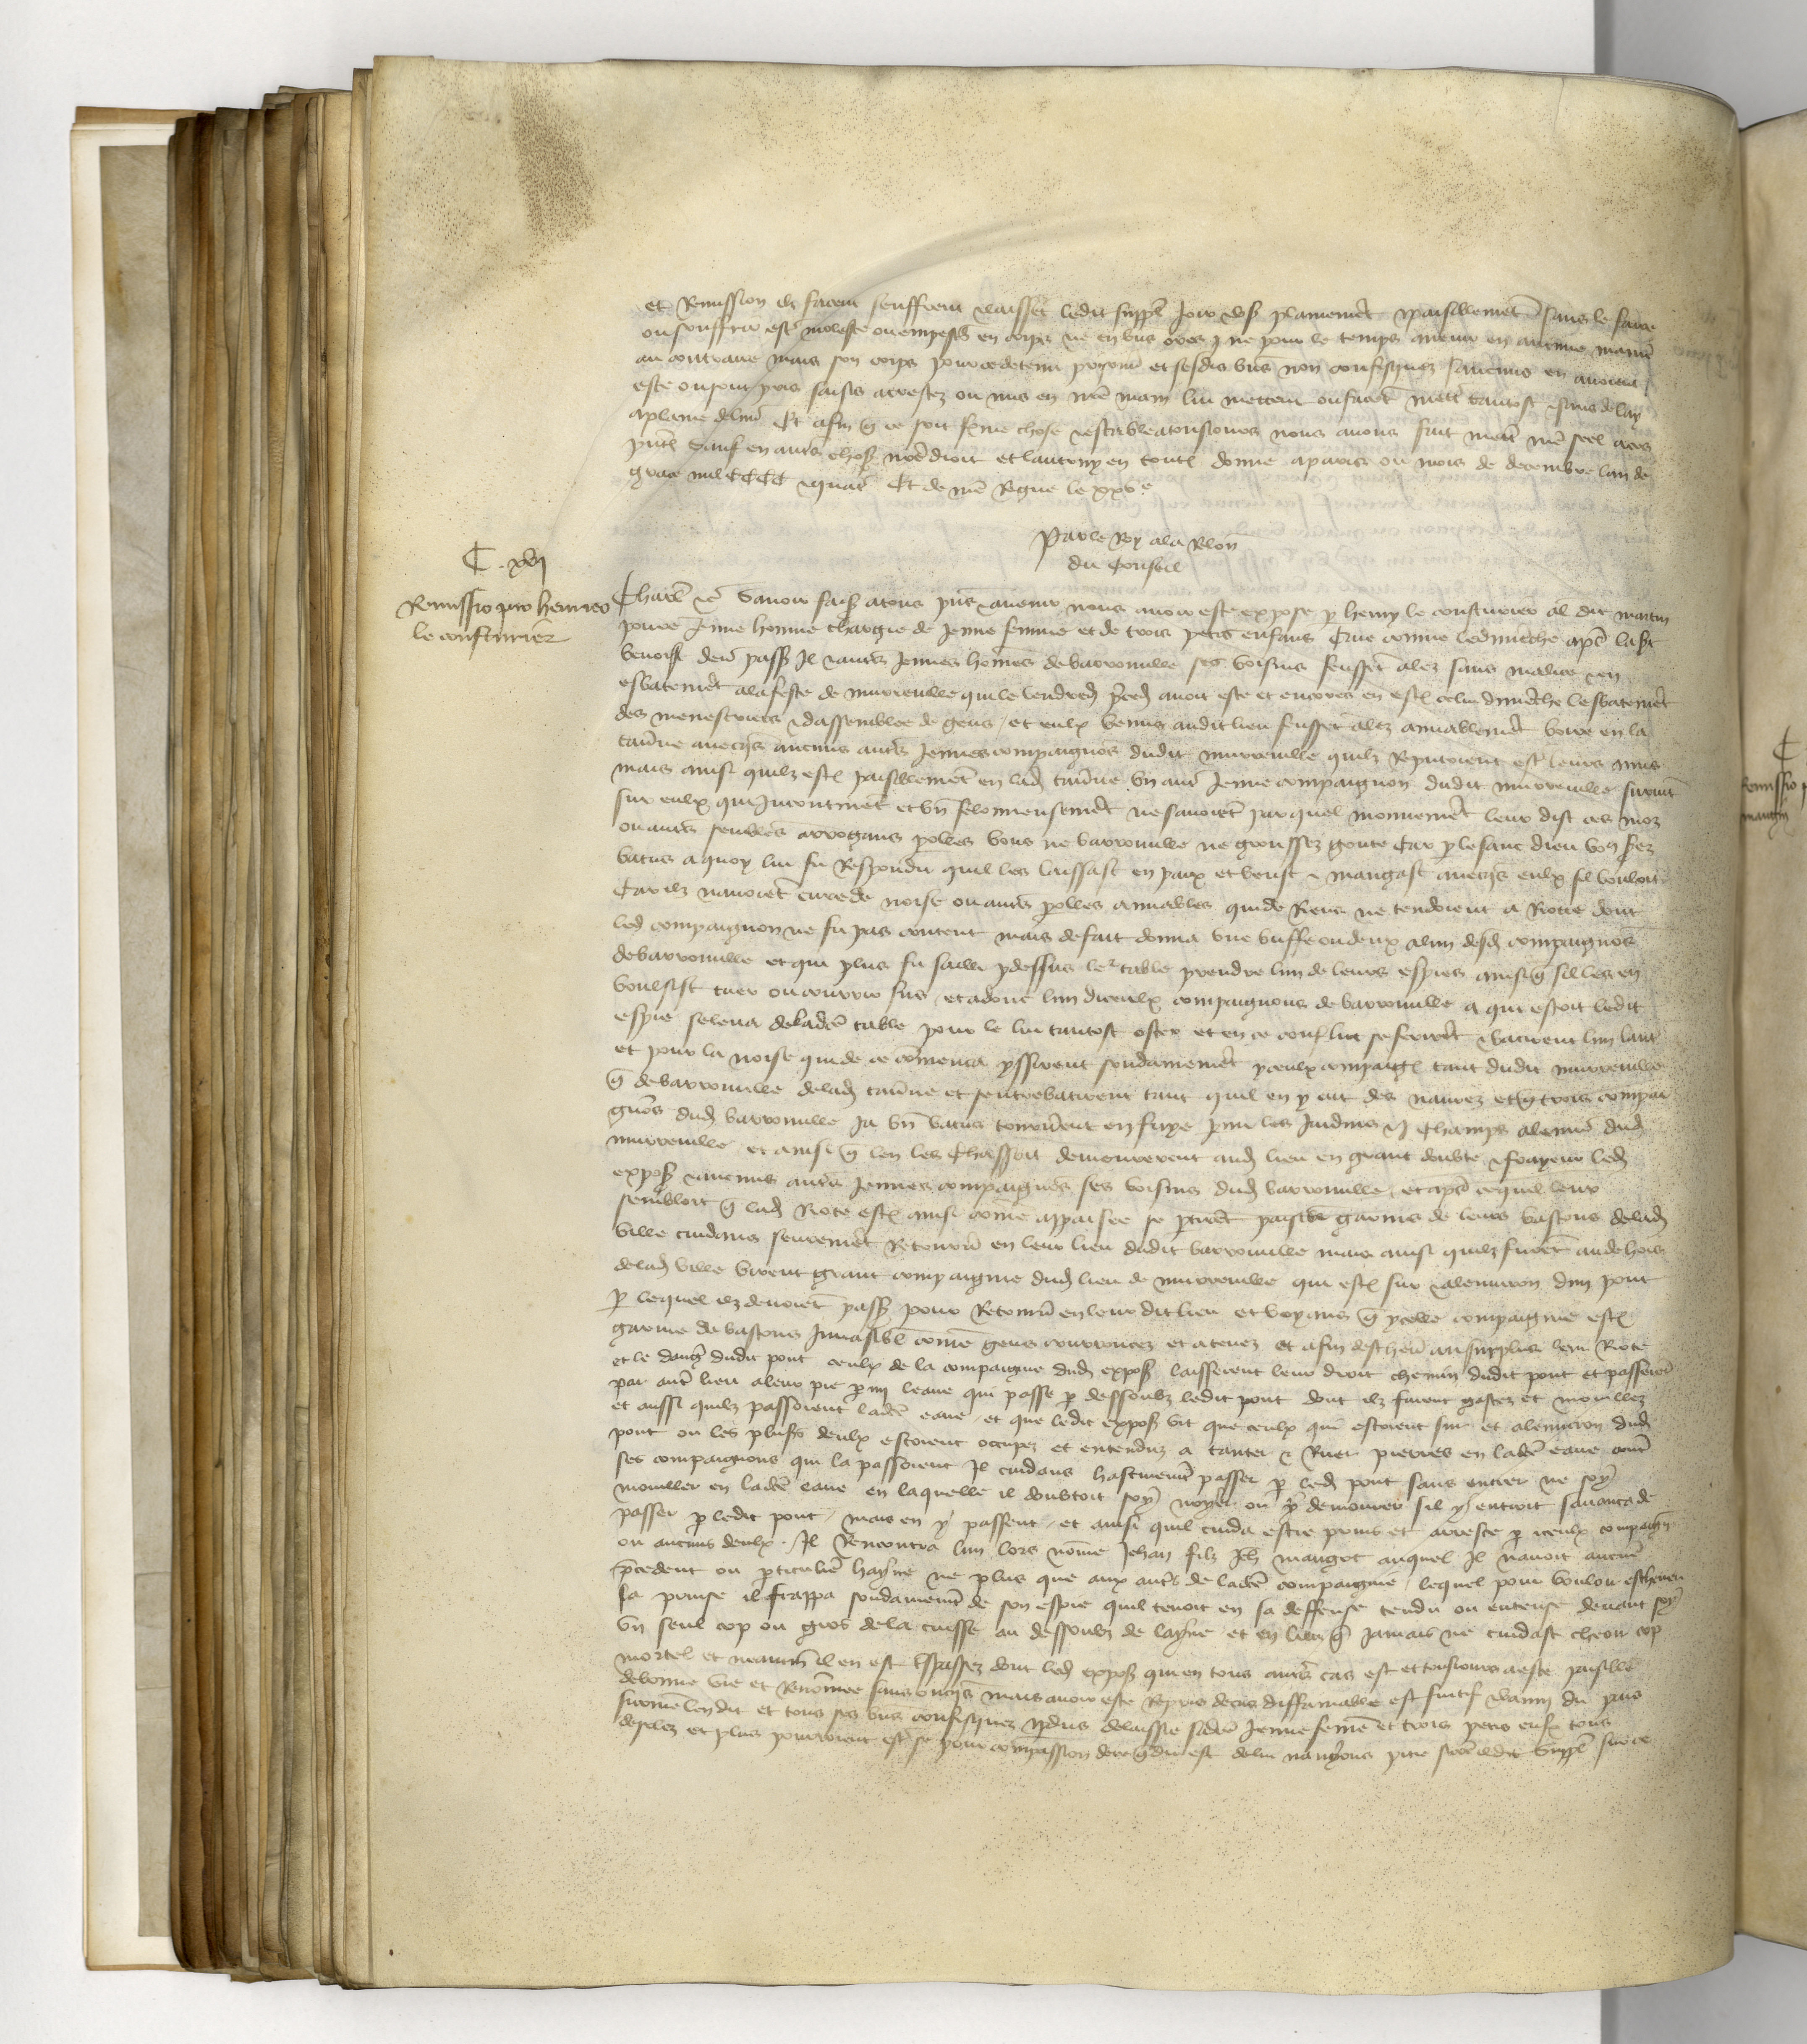 et Remission ilz facent seuffrent et laissent ledit suppl Joir et user plainement et paisiblement sans le faire
ou souffrir estre moleste ou empesche en corps ne en biens ores ne pour le temps avenir en aucune maniere
au contraire mais son corps pour ce detenu prisonnier et sesdis biens non confisquez saucuns en avoient
este ou sont pris saisis arrestez ou mis en nre main lui mettent ou facent mettre tantost et sans delay
a plaine delivr Et afin que ce soit ferme chose et estable a tousiours nous avons fait mettre nre seel a ces
pntes Sauf en autres choses nre droit et lautruy en toutes donne a paris ou mois de decembre lan de
grace mil CCCC et quatre Et de nre Regne le xxve
Par le Roy a la Relon
du Conseil
C . xvij
Remissio pro henrico
le cousturier
Charl etc Savoir faisons a tous pns et avenir nous avoir este expose p henry le cousturier al dit martin
povre Jeune homme chargie de Jeune femme et de trois petis enfans Que comme le dimenche apres la st
benoist der passe Il et autres Jeunes hommes de barronville ses voisins feussent alez sans malice en
esbatement a la feste de murreville qui le vendredi preced avoit este et encores en estoit celui dimenche lesbatement
des menestriers et dassemblee de gens / et eulx venus audit lieu feussent alez amiablement boire en la
taverne avecques aucuns autres Jeunes compaignons dudit murreville quilz Reputoient estre leurs amis
mais ainsi quilz estoient paisiblement en lad taverne un autre Jeune compaignon dudit murreville survint
sur eulx qui Incontinent et bien felonneusement ne savoient par quel mouvement leur dist ces moz
ou autres semblables arrogans parolles vous de barronville ne groussez goute Car p le sanc dieu vous serez
batus a quoy lui fu Respondu quil les laissast en paix et beust et mangast avecques eulx sil vouloit
Car ilz navoient cure de noise ou autres parolles amiables qui de Riens ne tendoient a Riote dont
led compaignon ne fu pas content mais de fait donna une buffe ou deux a lun desd compaignons
de barronville et qui plus fu sailli p dessus le table prendre lun de leurs espies ainsi que sil les en
voulsist tuer ou courir sus / et adonc lun diceulx compaignons de barronville a qui estoit ledit
espie se leva de ladicte table pour le lui tantost oster et en ce conflict se ferirent et batirent lun lautre
et pour la noise qui de ce commenca yssirent soudainement yceulx compaignons tant dudit murreville
que de barronville de lad taverne et sentrebatirent tant quil en y eut des navrez et que trois compai
gnons dud barronville Ja bien batus tournerent en fuye parmi les Jardins et Champs alenviron dud
murreville et ainsi que len les Chassoit demourerent aud lieu en grant doubte et frayeur led
exposant et aucuns autres Jeunes compaignons ses voisins dud barronville / et apres ce quil leur
sembloit que lad Riote estoit ainsi comme appaisee se partirent garnis de leurs bastons de lad
ville cuidans seurement Retourner en leur lieu dudit barronville mais ainsi quilz furent au dehors
de lad ville virent grant compaignie dud lieu de murreville qui estoit sur et alenviron dun pont
p lequel ilz devoient passer pour Retourner en leur dit lieu et voyans que ycelle compaignie estoit
garnie de bastons Invasibles comme gens courroucez et atenez et afin deschever au surplus leur Riote
et le dangier dudit pont ceulx de la compaignie dud exposant laisserent leur droit chemin dudit pont et passerent
par autre lieu a leur pie parmi leaue qui passe p dessoubz ledit pont dont ilz furent gastez et mouillez
et aussi quilz passoient ladicte eaue / et que ledit exposant vit que ceulx qui estoient sur et alenviron dud
pont ou les plusrs deulx estoient occupez et entenduz a tanter et Ruer pierres en ladicte eaue contre
ses compaignons qui la passoient Il cuidans hastivement passer p led pont sans entrer ne soy
mouiller en ladicte eaue en laquelle il doubtoit soy noyer ou y demourer sil y entroit savanca de
passer p ledit pont / mais en y passant / et ainsi quil cuida estre prins et arreste p iceulx compaign
ou aucuns deulx . Il Rencontra lun lors nomme Jehan filz Jeh maugot auquel Il navoit aucune
precedent ou particuliere hayne ne plus que aux autres de ladicte compaignie / lequel pour vouloir eschever
sa prinse il frappa soudainement de son espie quil tenoit en sa deffense tendu ou entense devant soy
un seul cop ou gros de la cuisse au dessoubz de layne et en lieu que jamais ne cuidast cheoir cop
mortel et neantmoins il en est trespassez dont led exposant qui en tous autres cas est et tousiours a este paisible
de bonne vie et Renommee sans oncques mais avoir este Repris de cas diffamable est fuitif et banny du pais
si comme len dit et tous ses biens confisquez perdus delaissie sadicte Jeune femme et trois petis enfans tous
desolez et plus pourroient estre se pour compassion de ce que dit est de lui navyons pitie sicome il dit Suppl sur ce